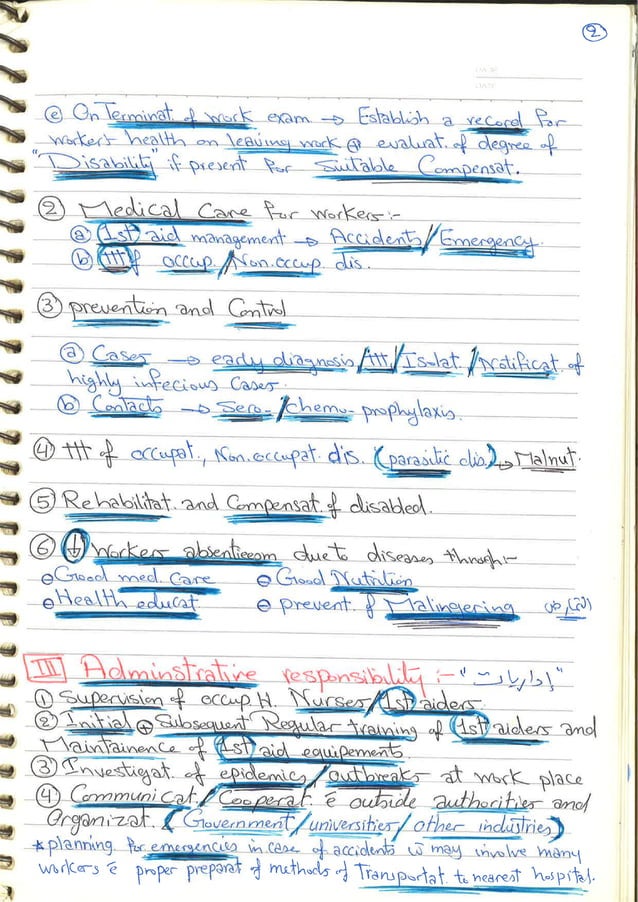 2
ⓔ On Terminat. of work exam → Establish a record for
worker's health on leaving work ⊕ evaluat. of degree of
"Disability" if present for suitable Compensat.
② Medical Care for workers:-
ⓐ 1st aid management → Accidents / Emergency.
ⓑ ttt of occup. / Non.occup. dis.
③ prevention and Control
ⓐ Cases → early diagnosis / ttt / Isolat. / Notificat. of
highly infecious Cases.
ⓑ Contacts → Sero- / chemo- prophylaxis.
④ ttt of occupat., Non.occupat. dis. (parasitic dis.) → Malnut.
⑤ Rehabilitat. and Compensat. of disabled.
⑥ ↓ Workers absenteeom due to diseases through:-
⊖ Good med. Care ⊖ Good Nutrition
⊖ Health educat ⊖ prevent. of Malingering
III Adminstrative responsibility :- "إداريات"
① Supervision of occup H. Nurses / 1st aiders.
② Initial ⊕ Subsequent Regular training of 1st aiders and
Maintainence of 1st aid equipements
③ Investigat. of epidemics / outbreaks at work place
④ Communicat. / Cooperat. c̄ outside authorities and
Organizat. (Government / universities / other industries)
* planning for emergencies in case of accidents ω may involve many
workers c̄ proper preparat of methods of Transportat. to nearest hospital.